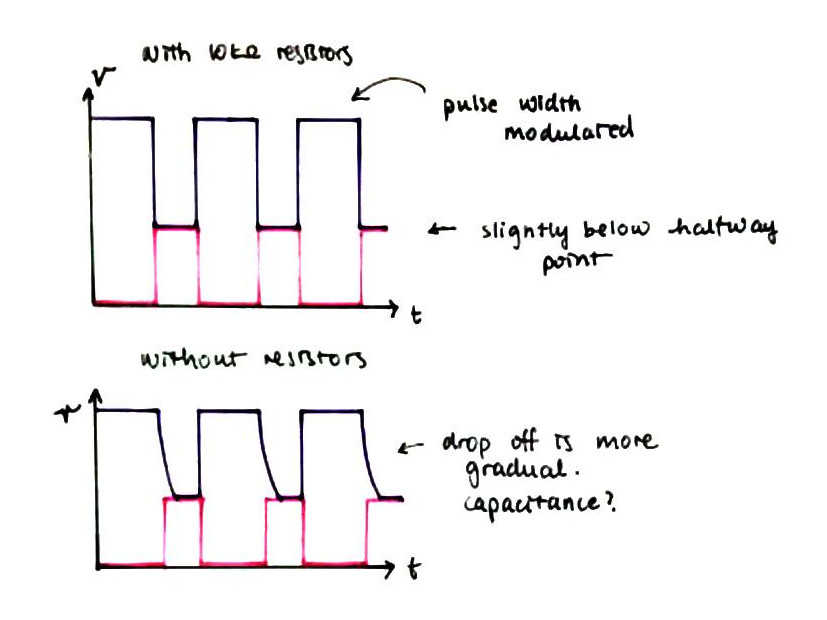 with 10kΩ resistors
V
pulse width
modulated
← slightly below halfway
point
t
without resistors
V
← drop off is more
gradual.
capacitance?
t